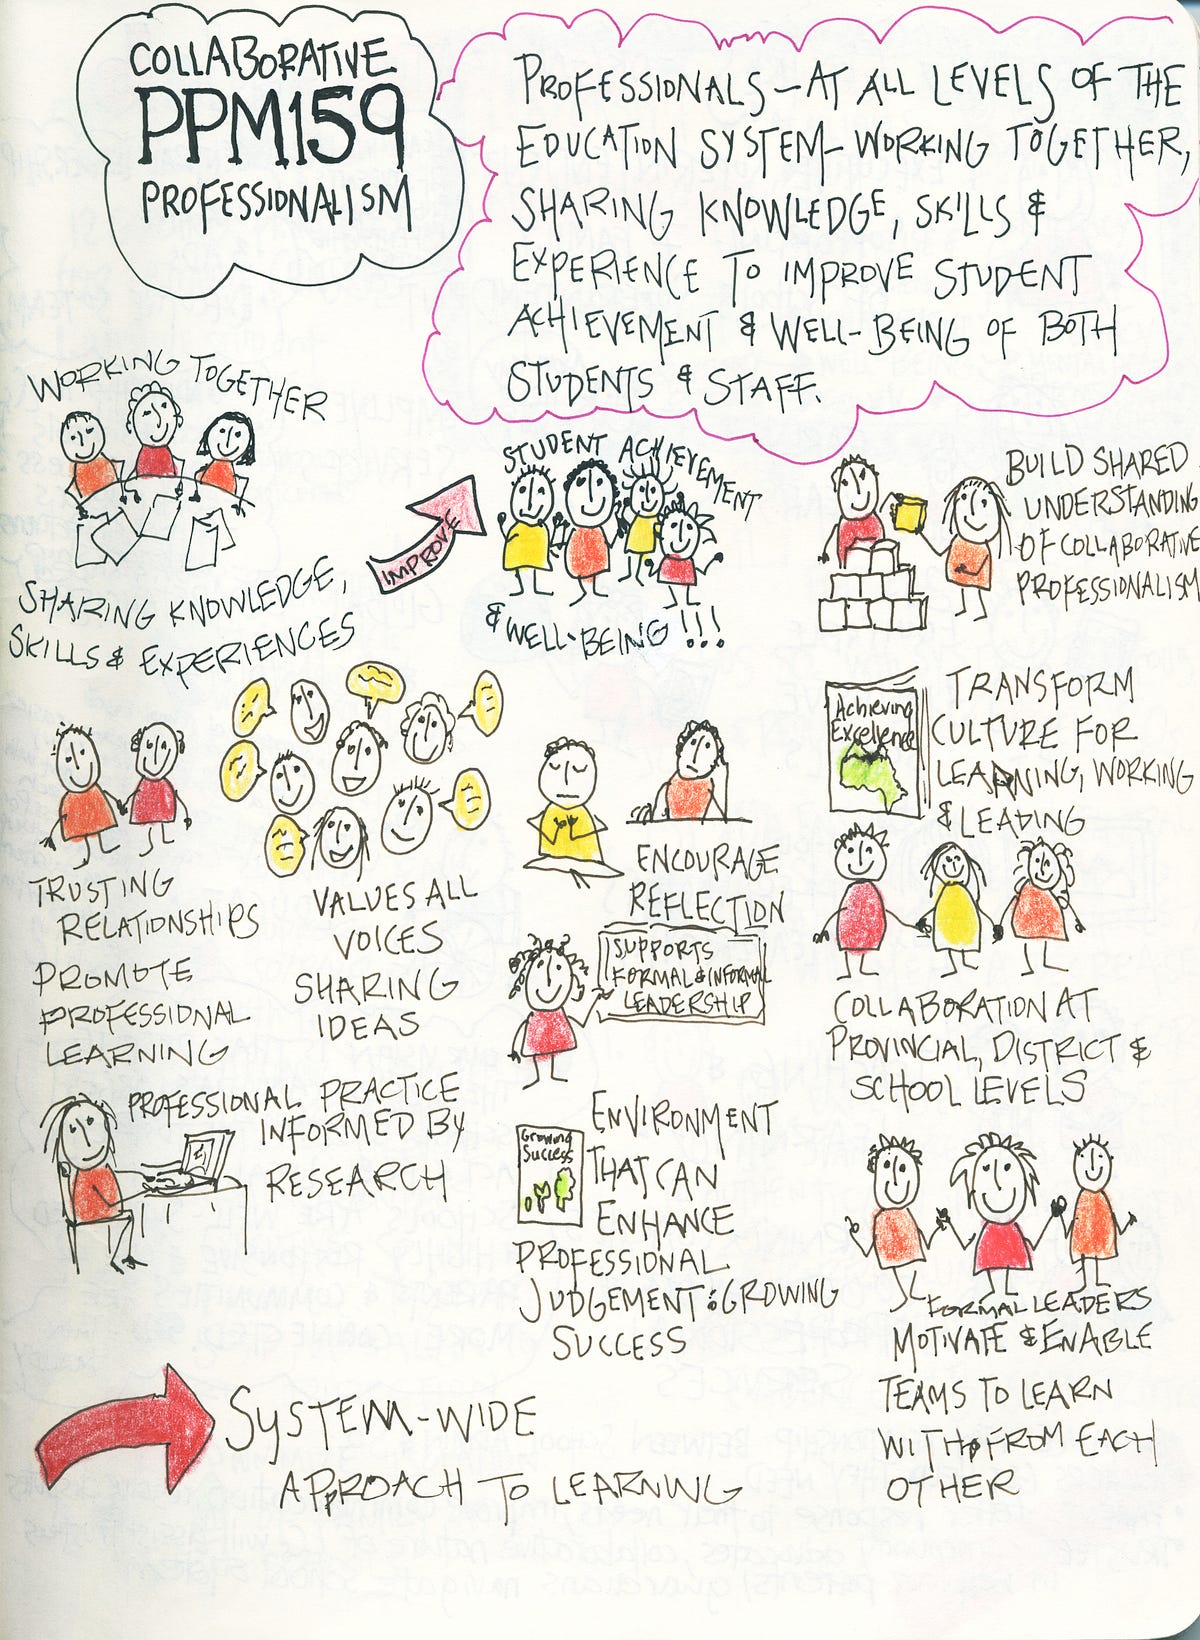 COLLABORATIVE
PPM159
PROFESSIONALISM
PROFESSIONALS – AT ALL LEVELS OF THE
EDUCATION SYSTEM – WORKING TOGETHER,
SHARING KNOWLEDGE, SKILLS &
EXPERIENCE TO IMPROVE STUDENT
ACHIEVEMENT & WELL-BEING OF BOTH
STUDENTS & STAFF.
WORKING TOGETHER
SHARING KNOWLEDGE,
SKILLS & EXPERIENCES
IMPROVE
STUDENT ACHIEVEMENT
& WELL-BEING !!!
BUILD SHARED
UNDERSTANDING
OF COLLABORATIVE
PROFESSIONALISM
TRUSTING
RELATIONSHIPS
PROMOTE
PROFESSIONAL
LEARNING
VALUES ALL
VOICES
SHARING
IDEAS
ENCOURAGE
REFLECTION
SUPPORTS
FORMAL & INFORMAL
LEADERSHIP
Achieving
Excellence
TRANSFORM
CULTURE FOR
LEARNING, WORKING
& LEADING
COLLABORATION AT
PROVINCIAL, DISTRICT &
SCHOOL LEVELS
PROFESSIONAL PRACTICE
INFORMED BY
RESEARCH
Growing
Success
ENVIRONMENT
THAT CAN
ENHANCE
PROFESSIONAL
JUDGEMENT : GROWING
SUCCESS
FORMAL LEADERS
MOTIVATE & ENABLE
TEAMS TO LEARN
WITH & FROM EACH
OTHER
SYSTEM-WIDE
APPROACH TO LEARNING